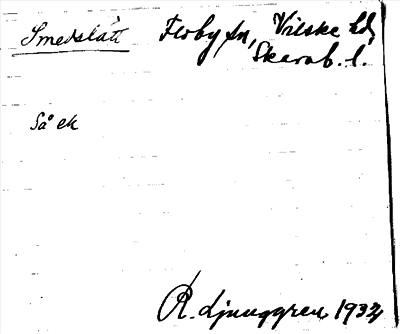 Smedslätt Floby sn, Vilske hd,
Skarab. l.
Så ek
R. Ljunggren 1932